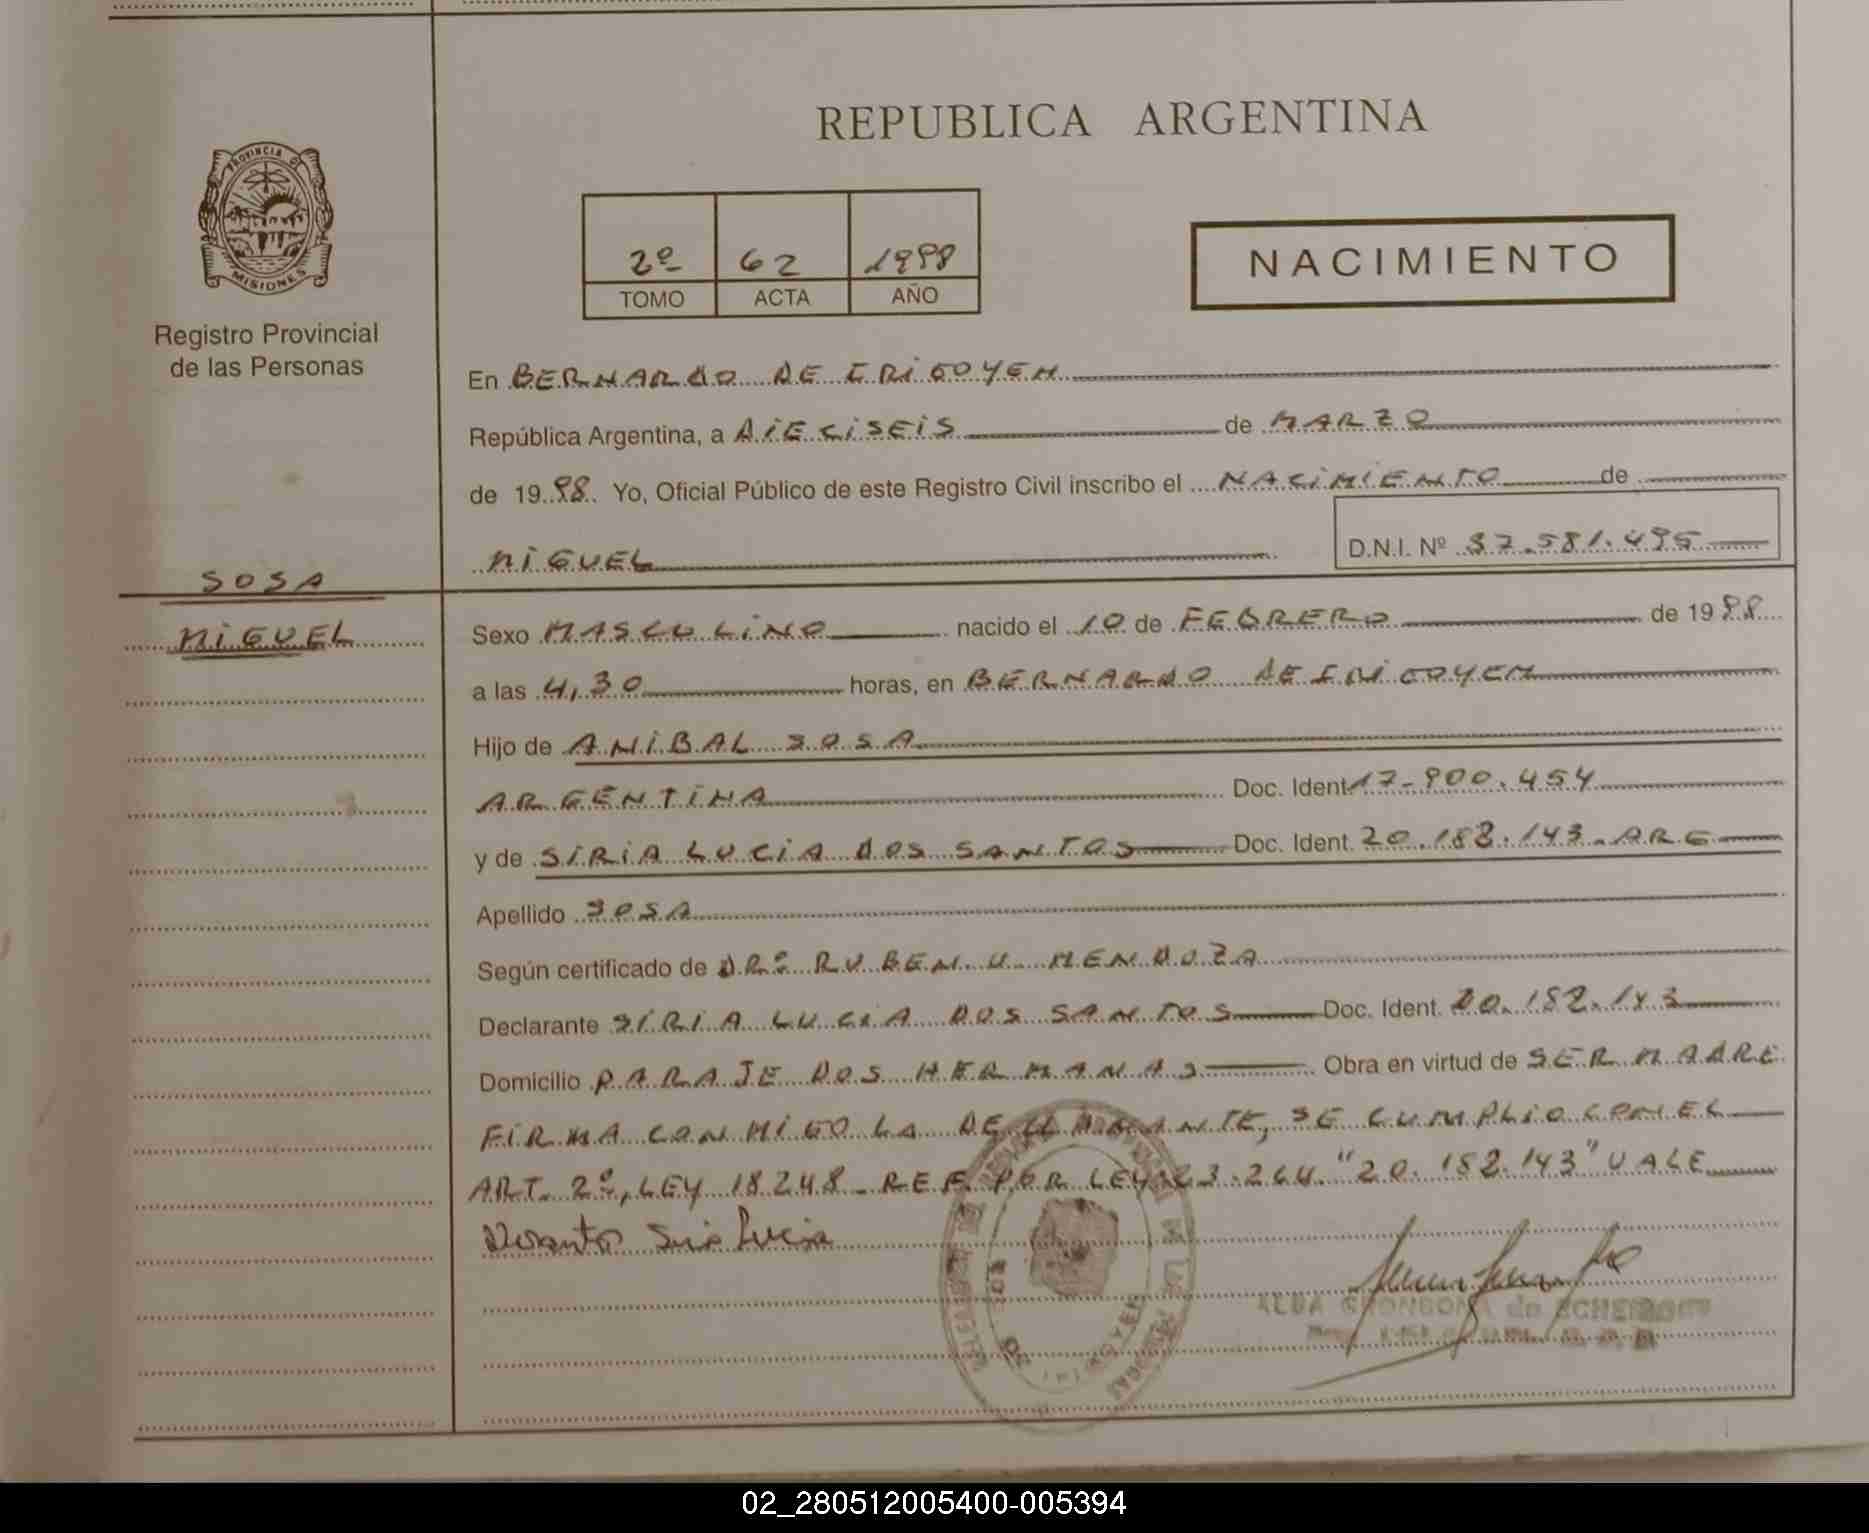 REPUBLICA ARGENTINA
PROVINCIA DE
MISIONES
Registro Provincial
de las Personas
2º 62 1998
TOMO ACTA AÑO
NACIMIENTO
En BERNARDO DE IRIGOYEN
República Argentina, a DIECISEIS de MARZO
de 1998. Yo, Oficial Público de este Registro Civil inscribo el NACIMIENTO de
MIGUEL
D.N.I. Nº 37.581.495
SOSA
MIGUEL
Sexo MASCULINO nacido el 10 de FEBRERO de 1998
a las 4,30 horas, en BERNARDO DE IRIGOYEN
Hijo de ANIBAL SOSA
ARGENTINA Doc. Ident 17-900.454
y de SIRIA LUCIA DOS SANTOS Doc. Ident. 20.182.143-ARG
Apellido SOSA
Según certificado de DRº RUBEN U MENDOZA
Declarante SIRIA LUCIA DOS SANTOS Doc. Ident. 20.182.143
Domicilio PARAJE DOS HERMANAS Obra en virtud de SER MADRE
FIRMA CONMIGO LA DECLARANTE, SE CUMPLIO CON EL
ART. 2º, LEY 18248 - REF. POR LEY 23.264. "20.182.143" VALE
ALBA de
02_280512005400-005394